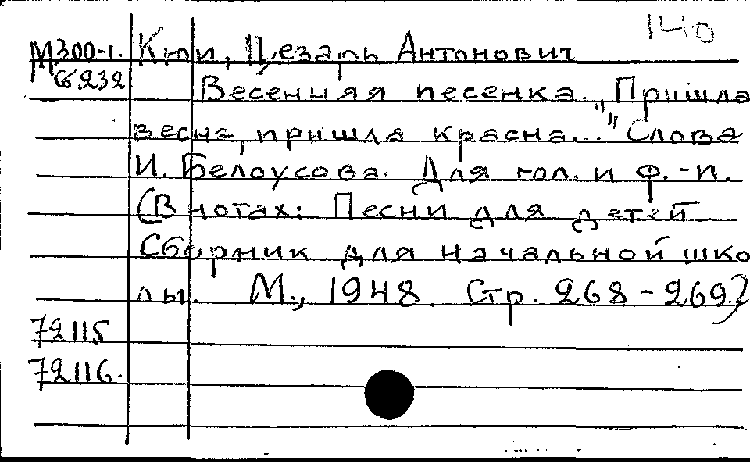 140
М300-1. Кюи, Цезарь Антонович
Весенняя песенка. "Пришла
весна, пришла красна..." Слова
И. Белоусова. Для гол. и ф.-п.
(В нотах: Песни для детей
Сборник для начальной шко
лы. М., 1948. Стр. 268-269)
72115
72116.